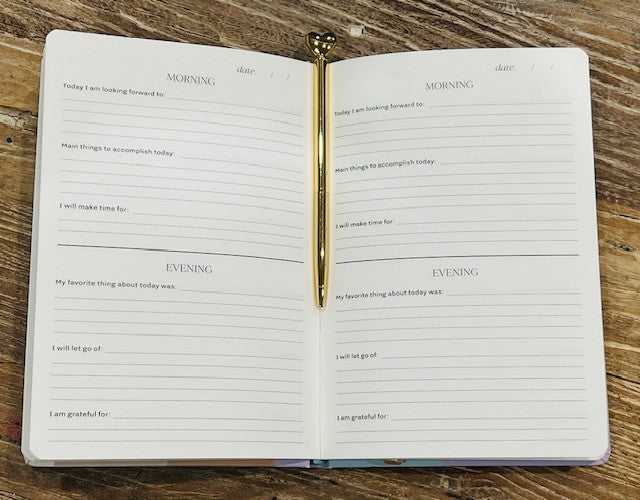 date: / /
MORNING
Today I am looking forward to:
Main things to accomplish today:
I will make time for:
EVENING
My favorite thing about today was:
I will let go of:
I am grateful for:
date: / /
MORNING
Today I am looking forward to:
Main things to accomplish today:
I will make time for:
EVENING
My favorite thing about today was:
I will let go of:
I am grateful for: